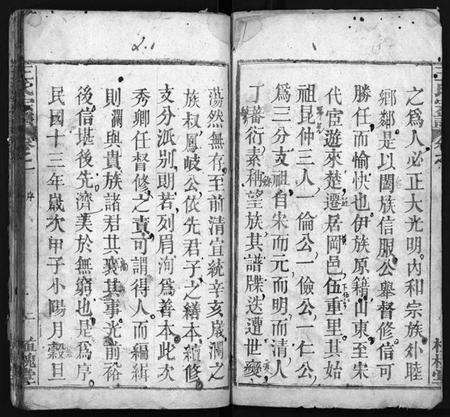 之爲人必正大光明內和宗族外睦
鄉鄰是以闔族信服公舉督修信可
勝任而愉快也伊族原籍山東至宋
代宦遊來楚遷居岡邑伍重里其始
祖昆仲三人一倫公一儉公一仁公
爲三分支祖自宋而元而明而清人
丁蕃衍素稱望族其譜牒迭遭世變
蕩然無存至前清宣統辛亥歲瀾之
族叔鳳岐公依先君子之繕本續修
支分派別朗若列眉洵爲善本此次
秀卿任督修之責可謂得人而編緝
則瀾與貴族諸君共襄其事光前裕
後信堪後先濟美於無窮也是爲序
民國十三年歲次甲子小陽月穀旦
2.1
1